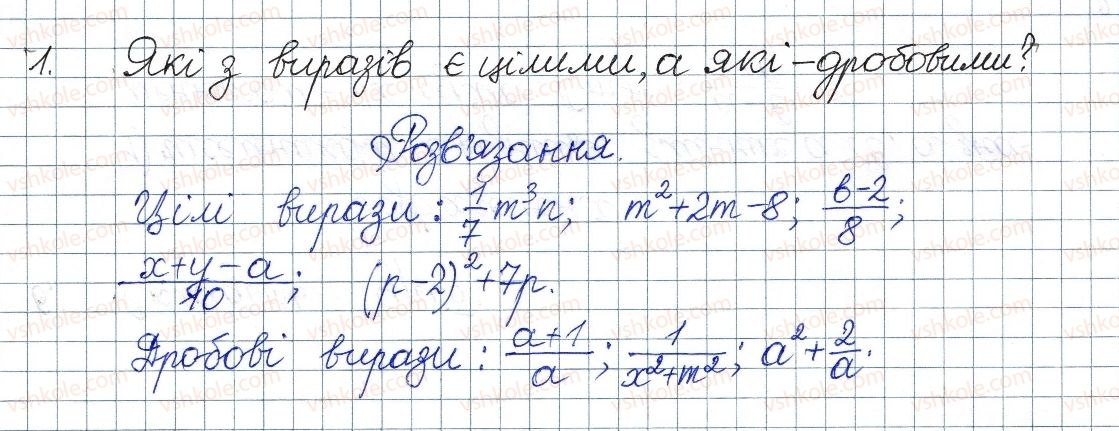 1. Які з виразів є цілими, а які – дробовими?
Розв'язання.
Цілі вирази: 1/7 m³n; m²+2m-8; (b-2)/8;
(x+y-a)/10; (p-2)²+7p.
Дробові вирази: (a+1)/a; 1/(x²+m²); a²+2/a.